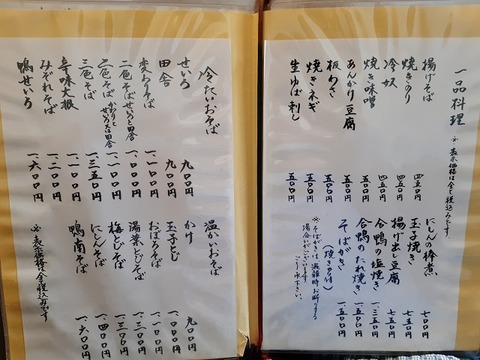 一品料理 ※表示価格は全て税込みです
揚げそば 四五〇円
焼きのり 四五〇円
冷奴 四五〇円
焼き味噌
豆腐
板わさ
焼きネギ
生ゆば刺し
にしんの棒煮 七〇〇円
玉子焼き 七五〇円
揚げ出し豆腐 七五〇円
合鴨の塩焼き 一三五〇円
合鴨のたれ焼き
そばがき
※そばがきは混雑時お断りする
場合がございます。
ご了承下さい。
冷たいおそば
せいろ 九〇〇円
田舎 九〇〇円
変わりそば 一一〇〇円
二色そば せいろと田舎 一一〇〇円
二色そば かわりとせいろ又は田舎 一一〇〇円
三色そば 一三五〇円
辛味大根 一一〇〇円
みぞれそば 一二〇〇円
鴨せいろ 一六〇〇円
温かいおそば
かけ 九〇〇円
玉子とじ 一〇〇〇円
おぼろそば 一一〇〇円
湯葉とじそば 一三〇〇円
梅とじそば
にしんそば 一四〇〇円
鴨南そば 一六〇〇円
※表示価格は全て税込みです